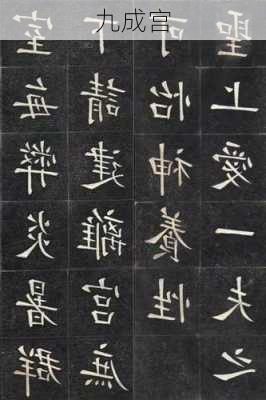 九成宫
室每弊炎暑群
下請建離宮庶
可怡神養性
聖上愛一夫之